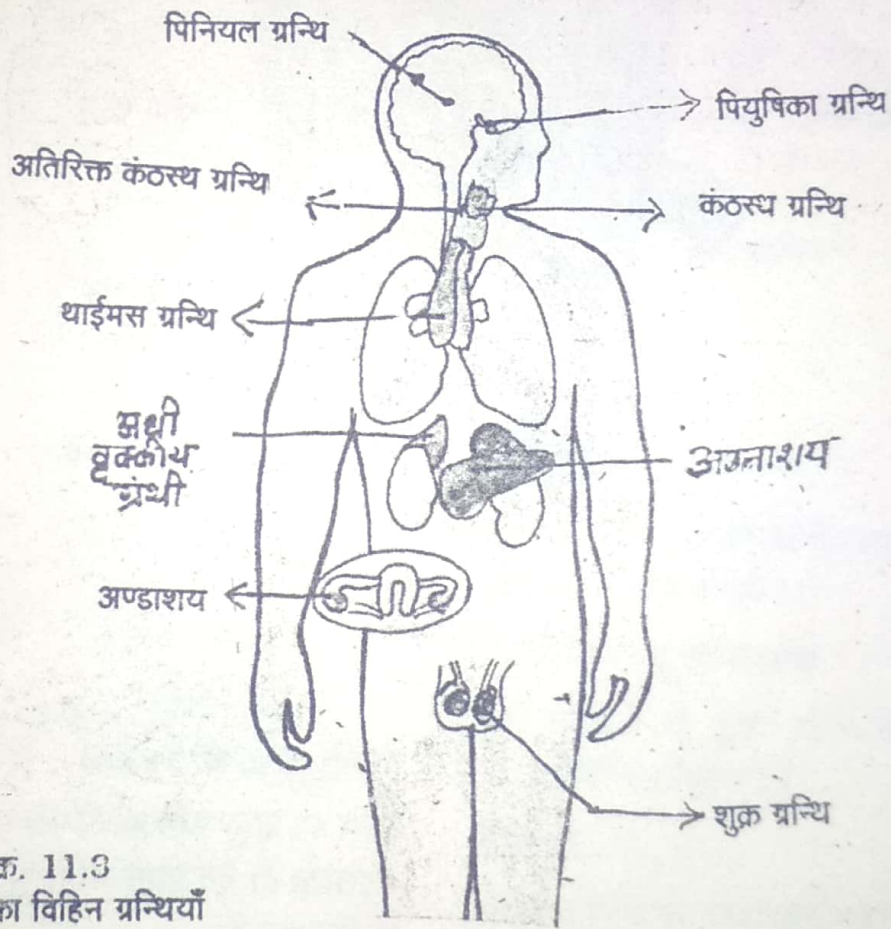 पिनियल ग्रन्थि
पियुषिका ग्रन्थि
अतिरिक्त कंठस्थ ग्रन्थि
कंठस्थ ग्रन्थि
थाईमस ग्रन्थि
वृक्कीय
ग्रंथी
अग्नाशय
अण्डाशय
शुक्र ग्रन्थि
क. 11.3
का विहिन ग्रन्थियाँ